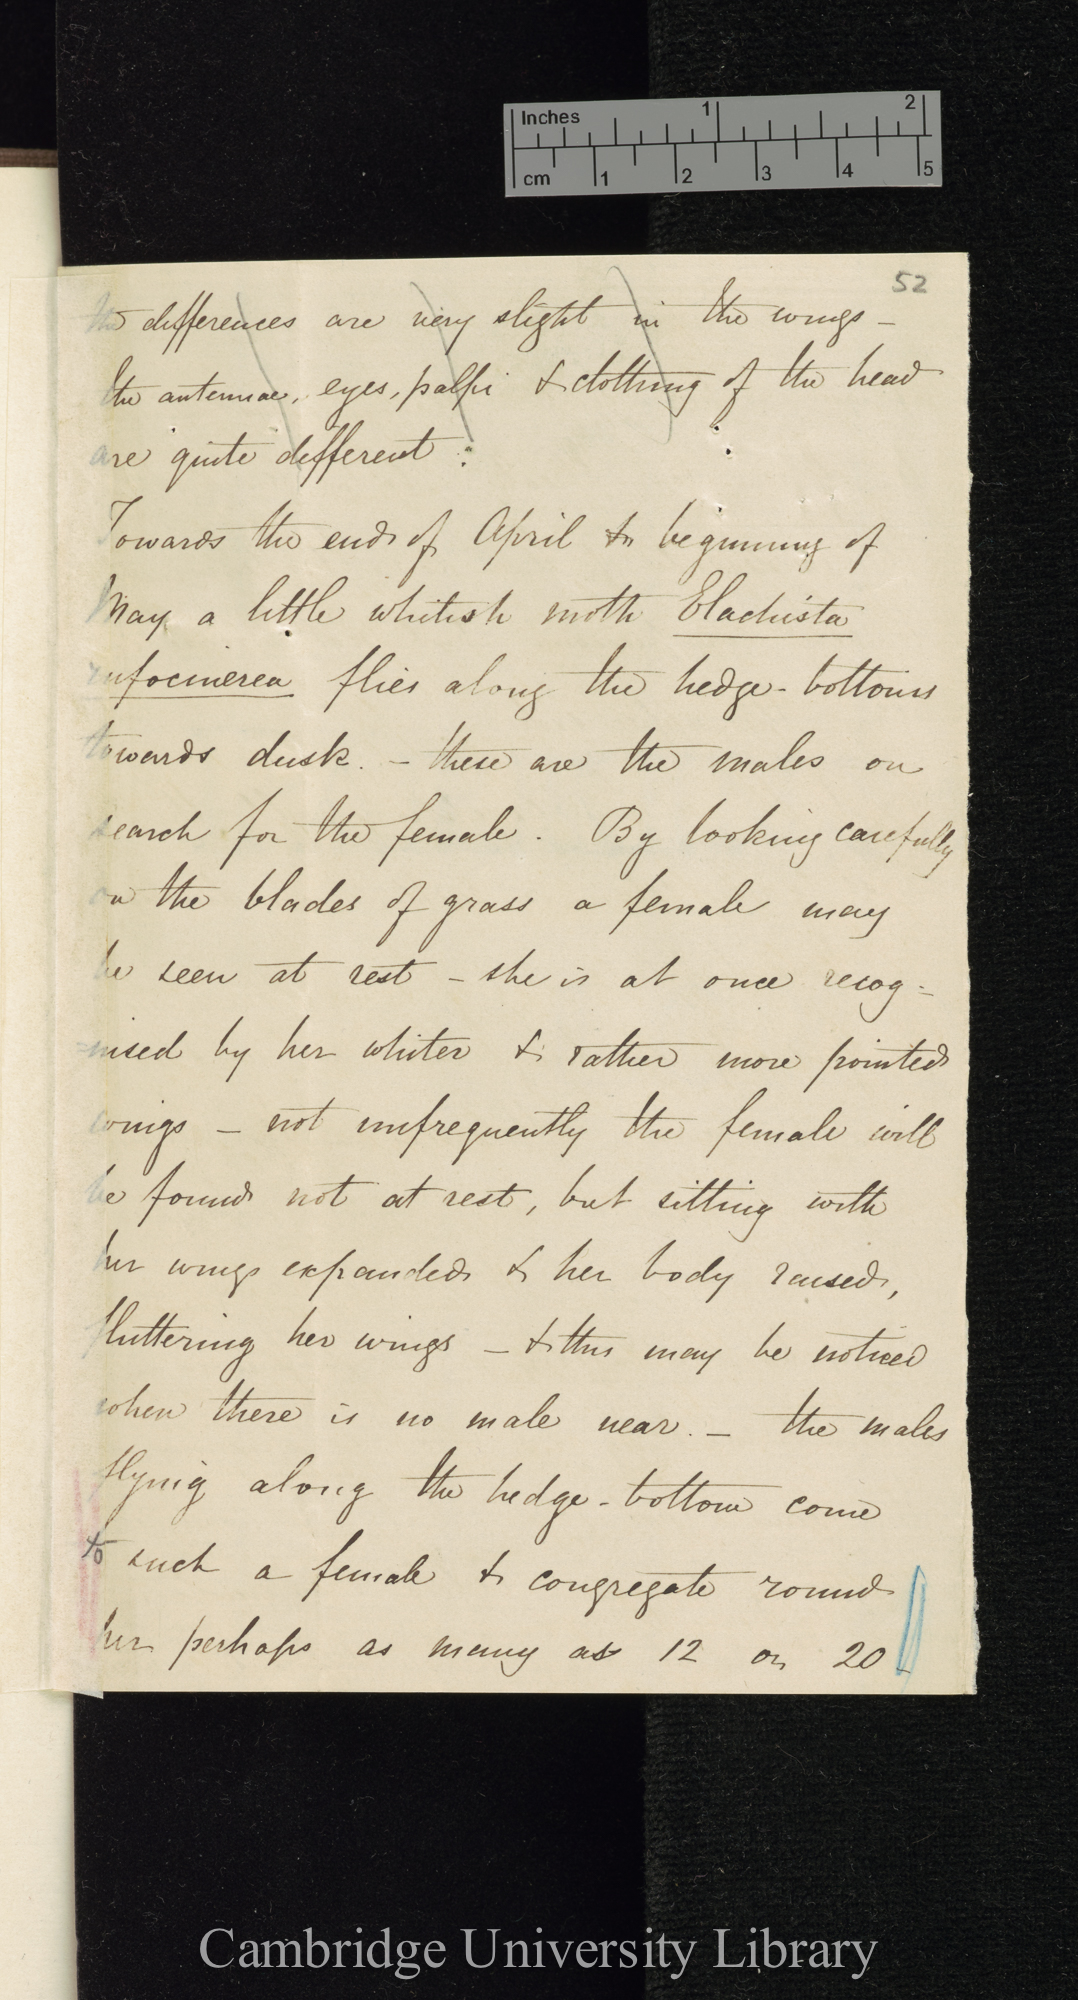 Inches 1 2
cm 1 2 3 4 5
52
the differences are very slight in the wings –
the antennae, eyes, palpi & clothing of the head
are quite different :
Towards the end of April & beginning of
May a little whitish moth Elachista
rufocinerea flies along the hedge-bottoms
towards dusk. – these are the males on
search for the female. By looking carefully
on the blades of grass a female may
be seen at rest – she is at once recog-
=nised by her whiter & rather more pointed
wings – not unfrequently the female will
be found not at rest, but sitting with
her wings expanded & her body raised,
fluttering her wings – & this may be noticed
when there is no male near. – the males
flying along the hedge-bottom come
to such a female & congregate round
her perhaps as many as 12 or 20
Cambridge University Library